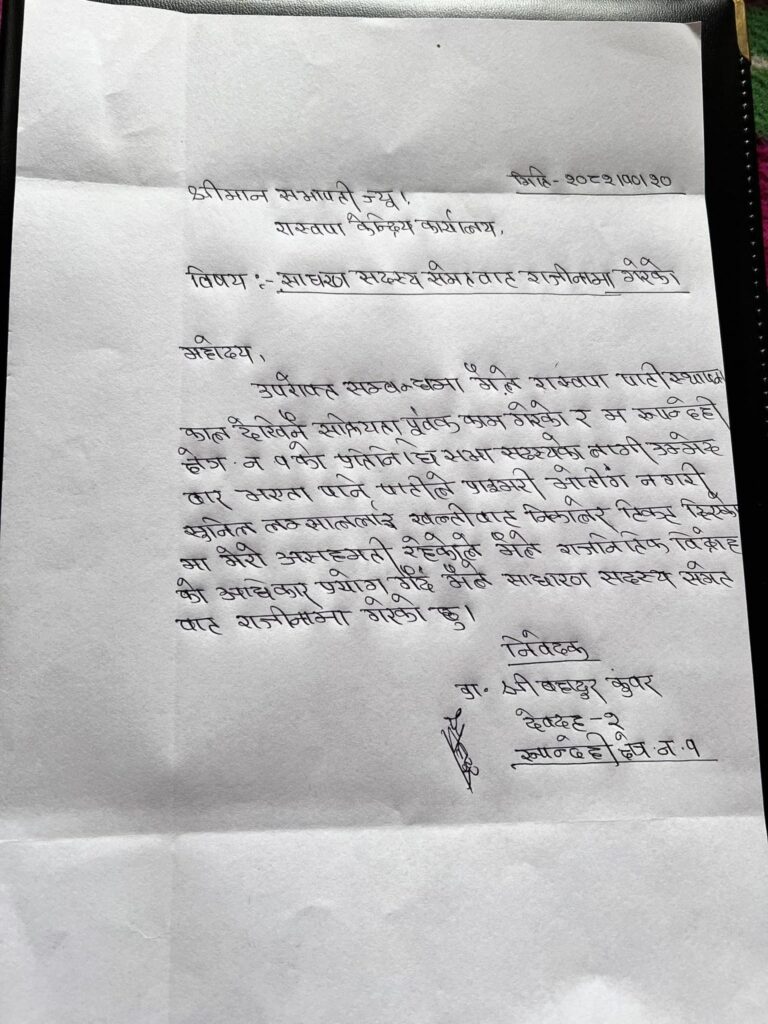 मिति - २०८२।१०।२०
श्रीमान सभापती ज्यू।
रास्वपा केन्द्रिय कार्यालय,
विषय :- साधरण सदस्य समेतवाट राजीनामा गरेको
महोदय,
उपरोक्त सम्वन्धमा मैले रास्वपा पार्टी स्थापना
काल देखिनै सक्रियता पूर्वक काम गरेको र म रूपान्देही
क्षेत्र . न १ को प्रतिनिधि सभा सदस्यका लागी उम्मेद
वार भएता पनि पार्टीले प्राइमरी भोटींग नगरी
सुनिल लम्साललाई खल्तीवाट निकालेर टिकट दिएको
मा मेरो असहमती रहेकोले मैले राजनितिक विद्रोह
को अधिकार प्रयोग गर्दै मैले साधारण सदस्य समेत
वाट राजीनामा गरेको छु।
निवेदक
श्री वहादुर कुंवर
देवदह - २
रूपन्देही क्षेत्र . न . १